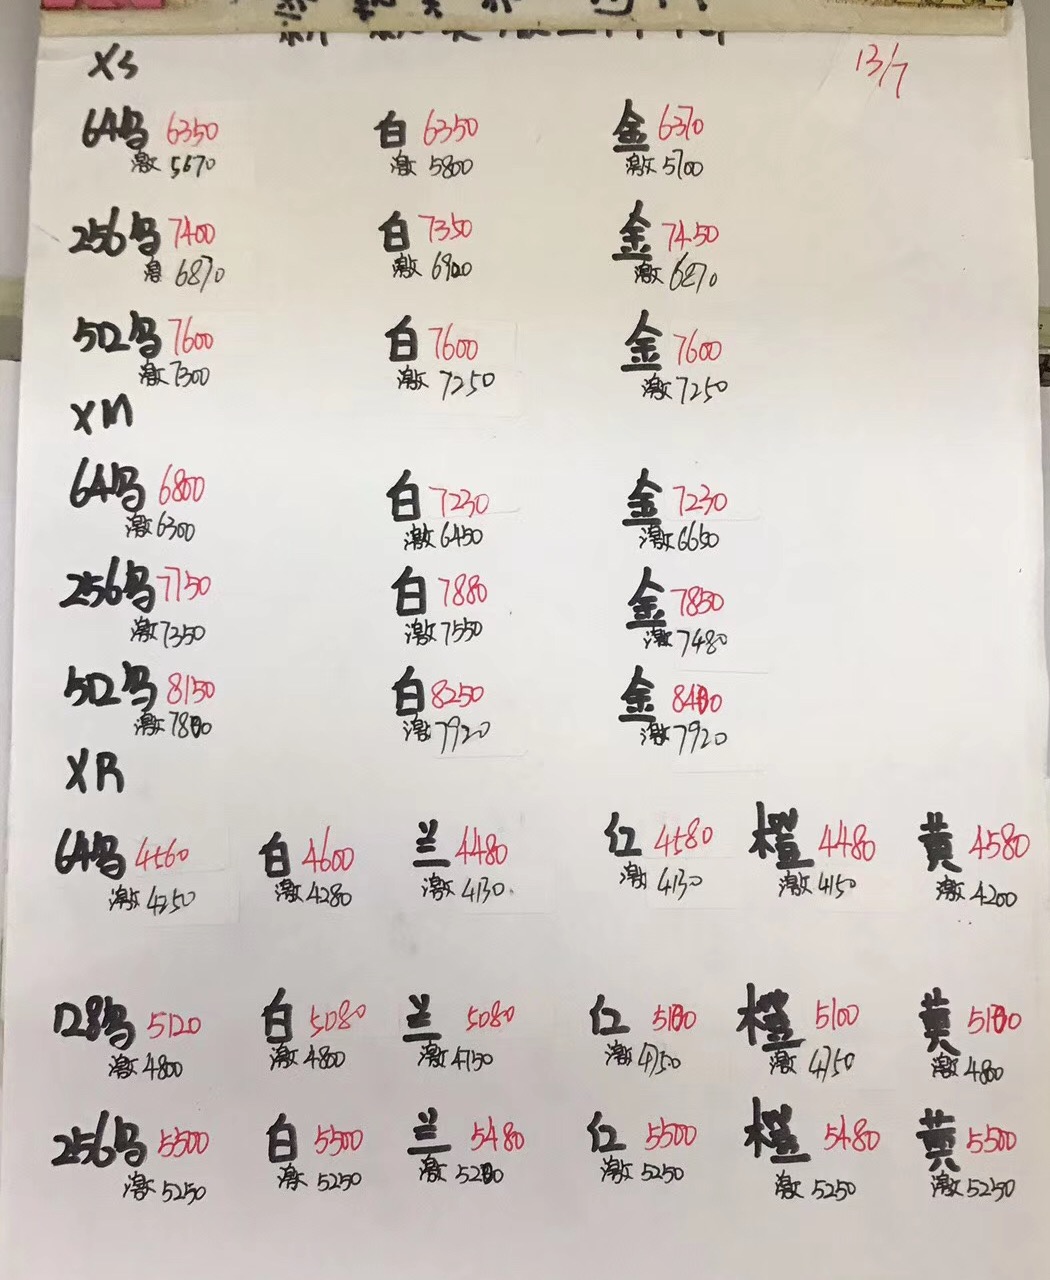 XS
13/7
64乌 6350 白 6350 金 6370
激 5670 激 5800 激 5700
256乌 7400 白 7350 金 7450
激 6870 激 6920 激 6870
512乌 7600 白 7600 金 7600
激 7300 激 7250 激 7250
XM
64乌 6800 白 7230 金 7230
激 6300 激 6450 激 6650
256乌 7750 白 7880 金 7850
激 7350 激 7550 激 7480
512乌 8150 白 8250 金
激 激 7920 激 7920
XR
64乌 4560 白 4600 兰 4480 红 4580 橙 4480 黄 4580
激 4250 激 4280 激 4130 激 4130 激 4150 激 4200
128乌 5120 白 5080 兰 5080 红 5100 橙 5100 黄 5100
激 4800 激 4800 激 4750 激 4750 激 4750 激 4800
256乌 5500 白 5500 兰 5480 红 5500 橙 5480 黄 5500
激 5250 激 5250 激 5200 激 5250 激 5250 激 5250